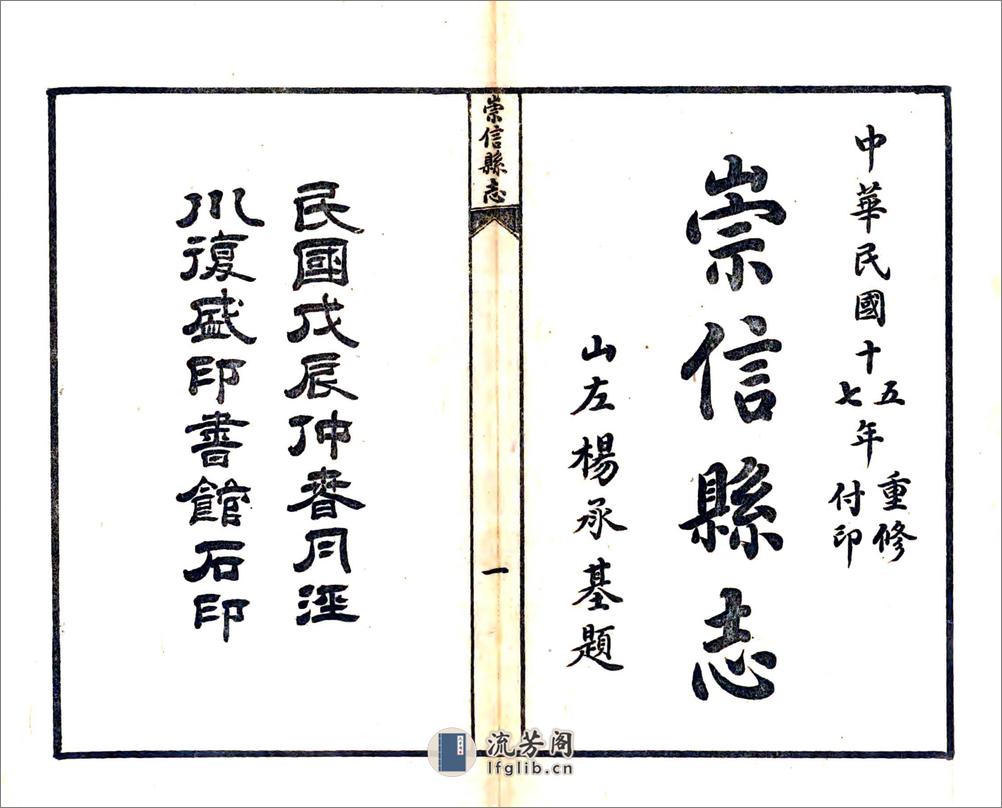 中華民國十五七年重修付印
崇信縣志
山左楊承基題
崇信縣志
一
民國戊辰仲春月涇
川復盛印書館石印
流芳阁
lfglib.cn